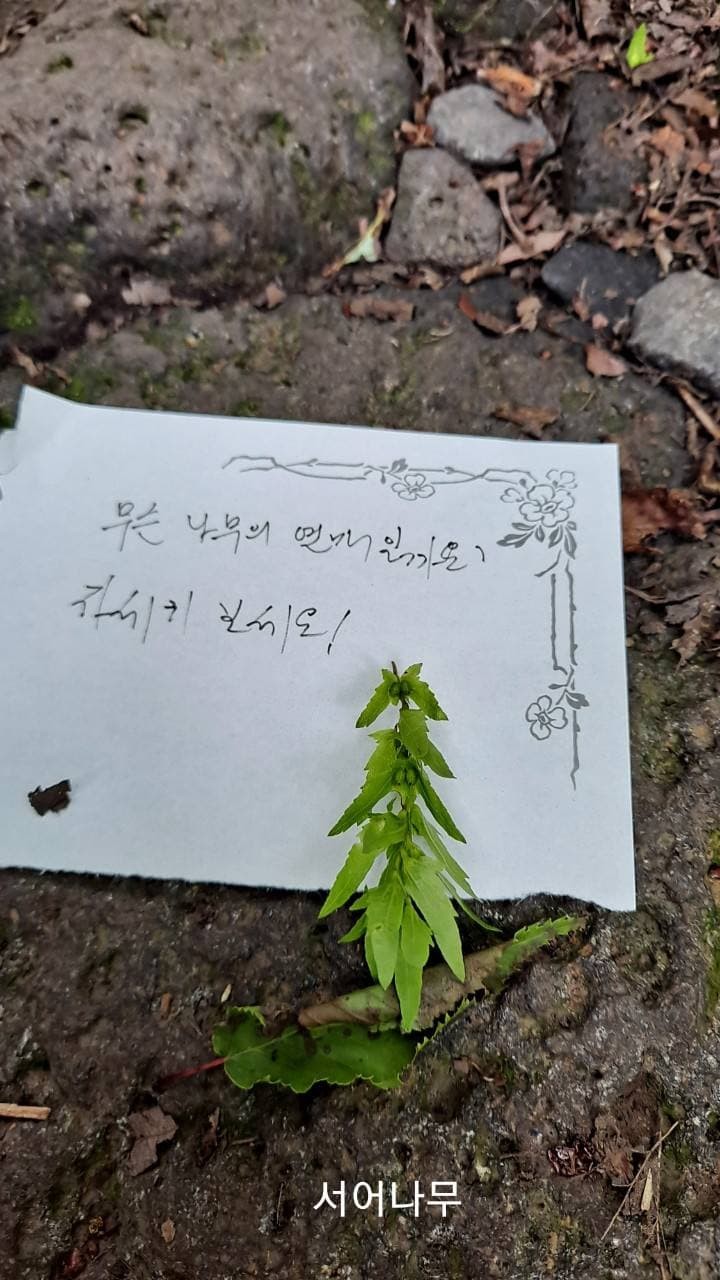 무슨 나무의 열매일가요?
자세히 보세요!
서어나무